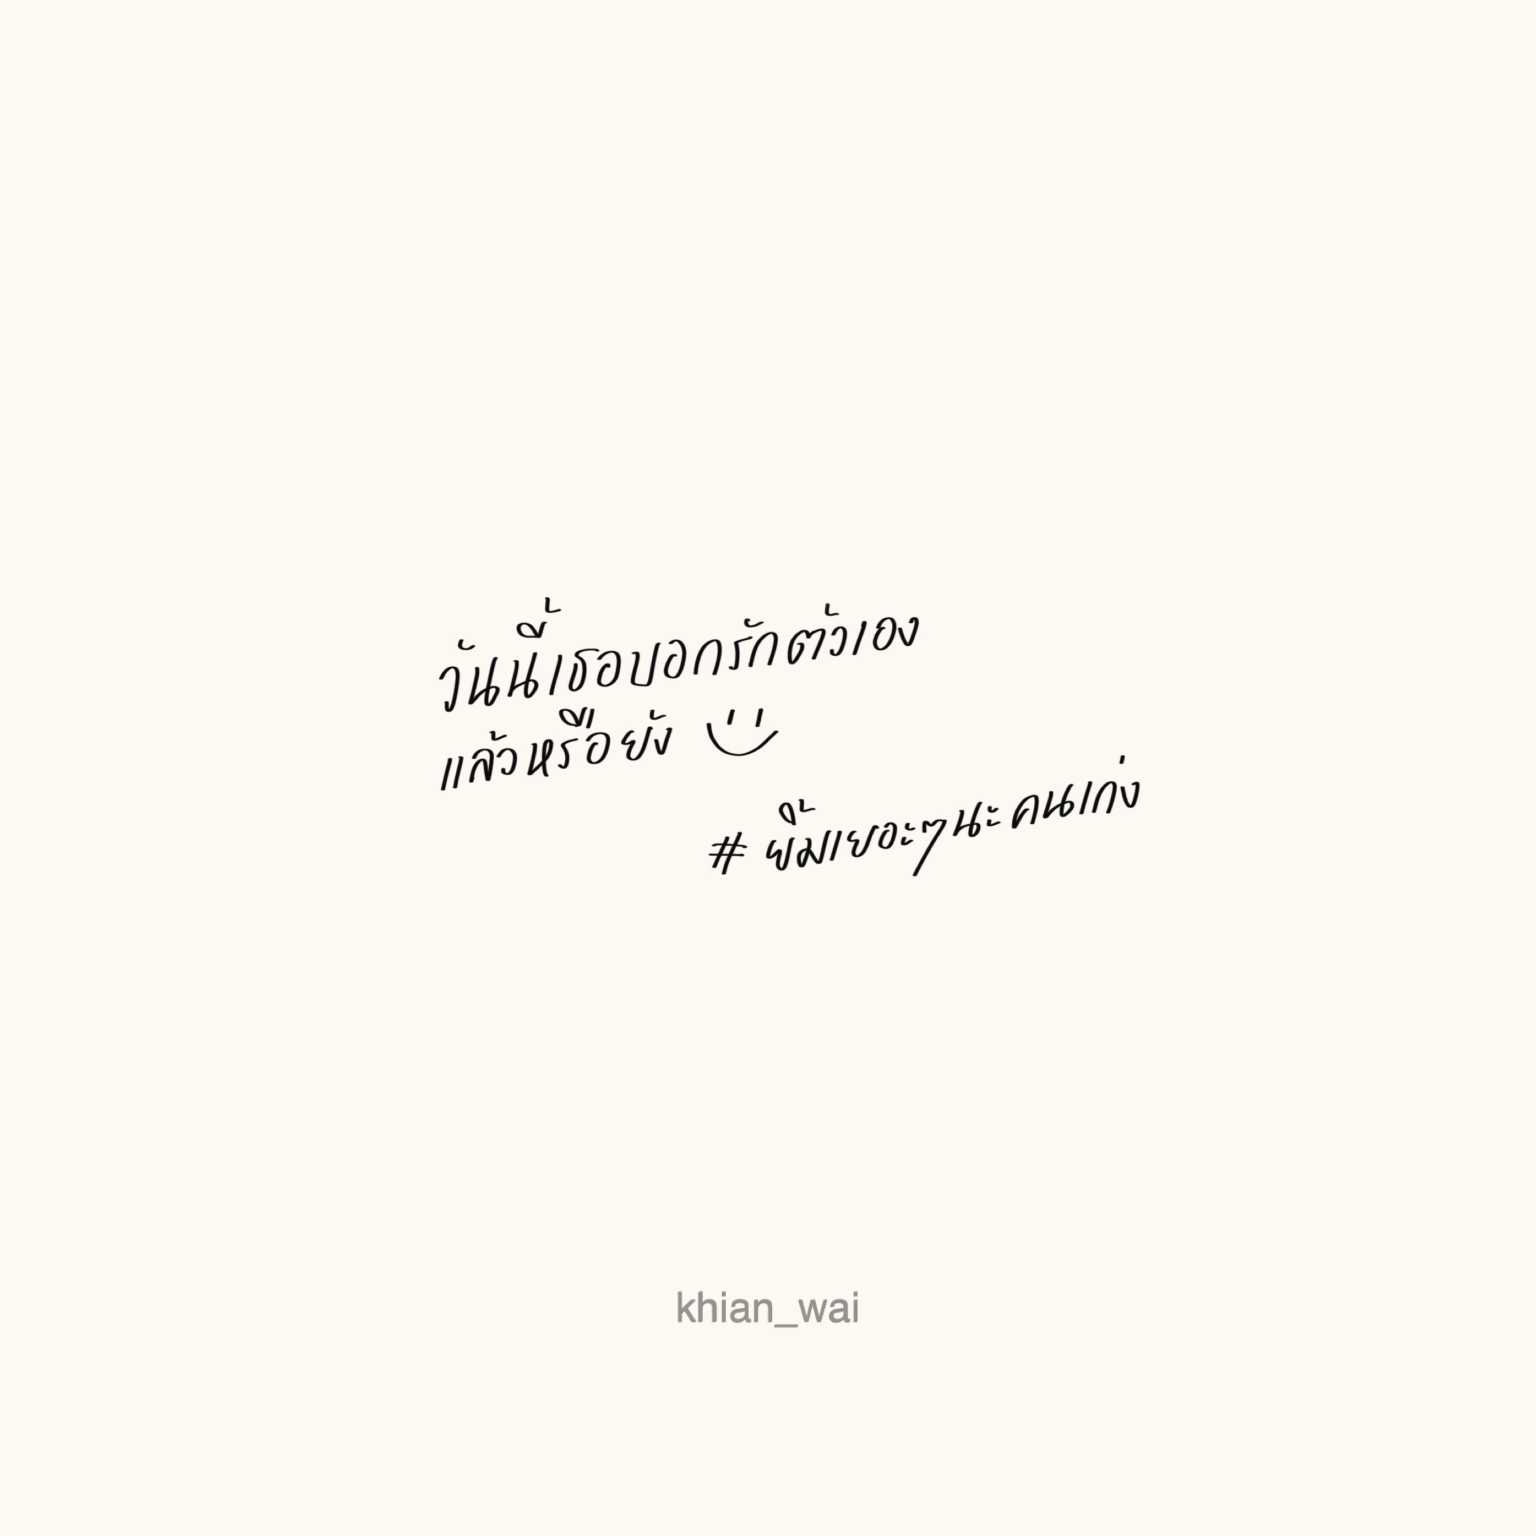 วันนี้เธอบอกรักตัวเอง
แล้วหรือยัง
# ยิ้มเยอะๆนะคนเก่ง
khian_wai